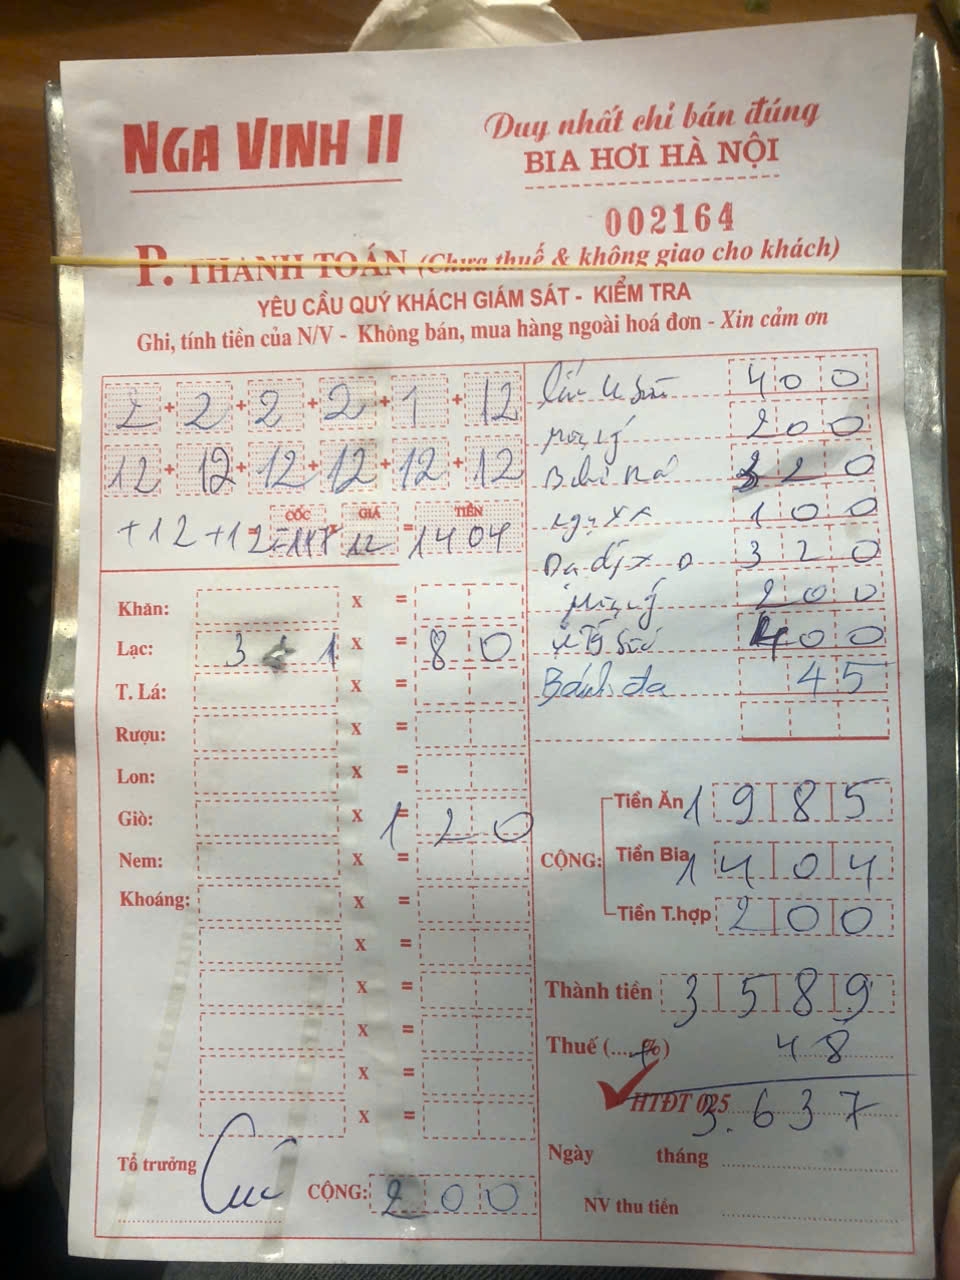 NGA VINH II
Duy nhất chỉ bán đúng
BIA HƠI HÀ NỘI
002164
P. THANH TOÁN (Chưa thuế & không giao cho khách)
YÊU CẦU QUÝ KHÁCH GIÁM SÁT - KIỂM TRA
Ghi, tính tiền của N/V - Không bán, mua hàng ngoài hoá đơn - Xin cảm ơn
2 + 2 + 2 + 2 + 1 + 12
12 + 12 + 12 + 12 + 12 + 12
CỐC GIÁ TIỀN
+12 +12 = 117 x 12 = 1404
Khăn: x =
Lạc: 3 + 1 x = 80
T. Lá: x =
Rượu: x =
Lon: x =
Giò: x = 120
Nem: x =
Khoáng: x =
x =
x =
x =
x =
x =
Tổ trưởng
CỘNG: 200
400
200
320
100
320
200
400
Bánh đa 45
CỘNG:
Tiền Ăn 1985
Tiền Bia 1404
Tiền T.hợp 200
Thành tiền 3589
Thuế (.....%) 48
HTĐT 025 3.637
Ngày tháng
NV thu tiền